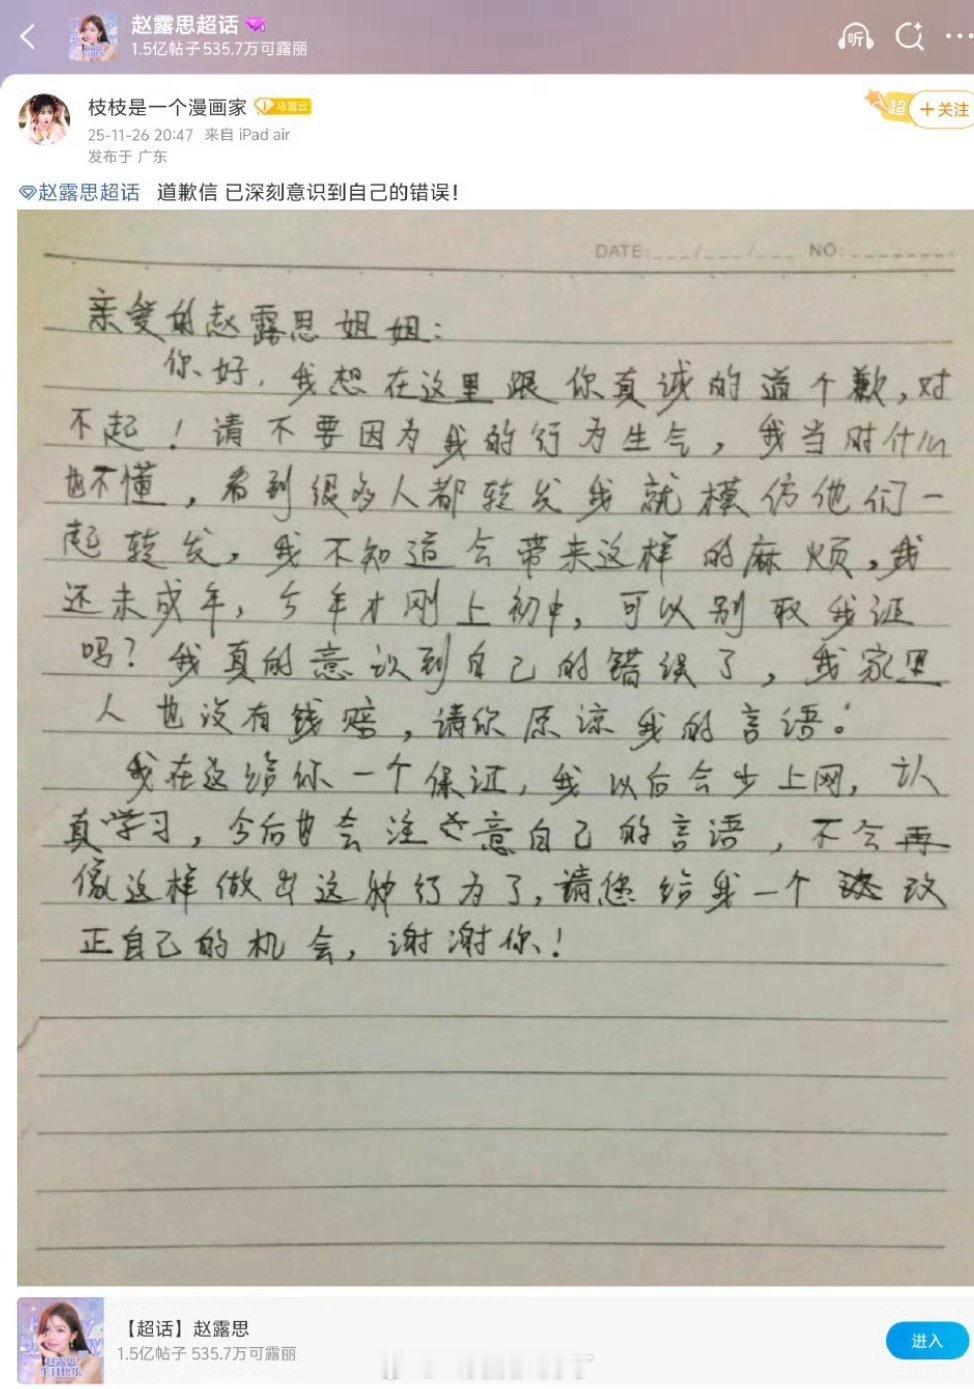 赵露思超话
1.5亿帖子 535.7万可露丽
听
枝枝是一个漫画家
25-11-26 20:47 来自 iPad air
发布于 广东
超
+关注
赵露思超话 道歉信 已深刻意识到自己的错误！
DATE:___/___/___ NO:________
亲爱的赵露思姐姐：
你好，我想在这里跟你真诚的道个歉，对
不起！请不要因为我的行为生气，我当时什么
也不懂，看到很多人都转发我就模仿他们一
起转发，我不知道会带来这样的麻烦，我
还未成年，今年才刚上初中，可以别取我证
吗？我真的意识到自己的错误了，我家里
人也没有钱赔，请你原谅我的言语。
我在这给你一个保证，我以后会少上网，认
真学习，今后也会注意自己的言语，不会再
像这样做出这种行为了，请您给我一个改
正自己的机会，谢谢你！
赵露思
生日快乐
【超话】赵露思
1.5亿帖子 535.7万可露丽
进入